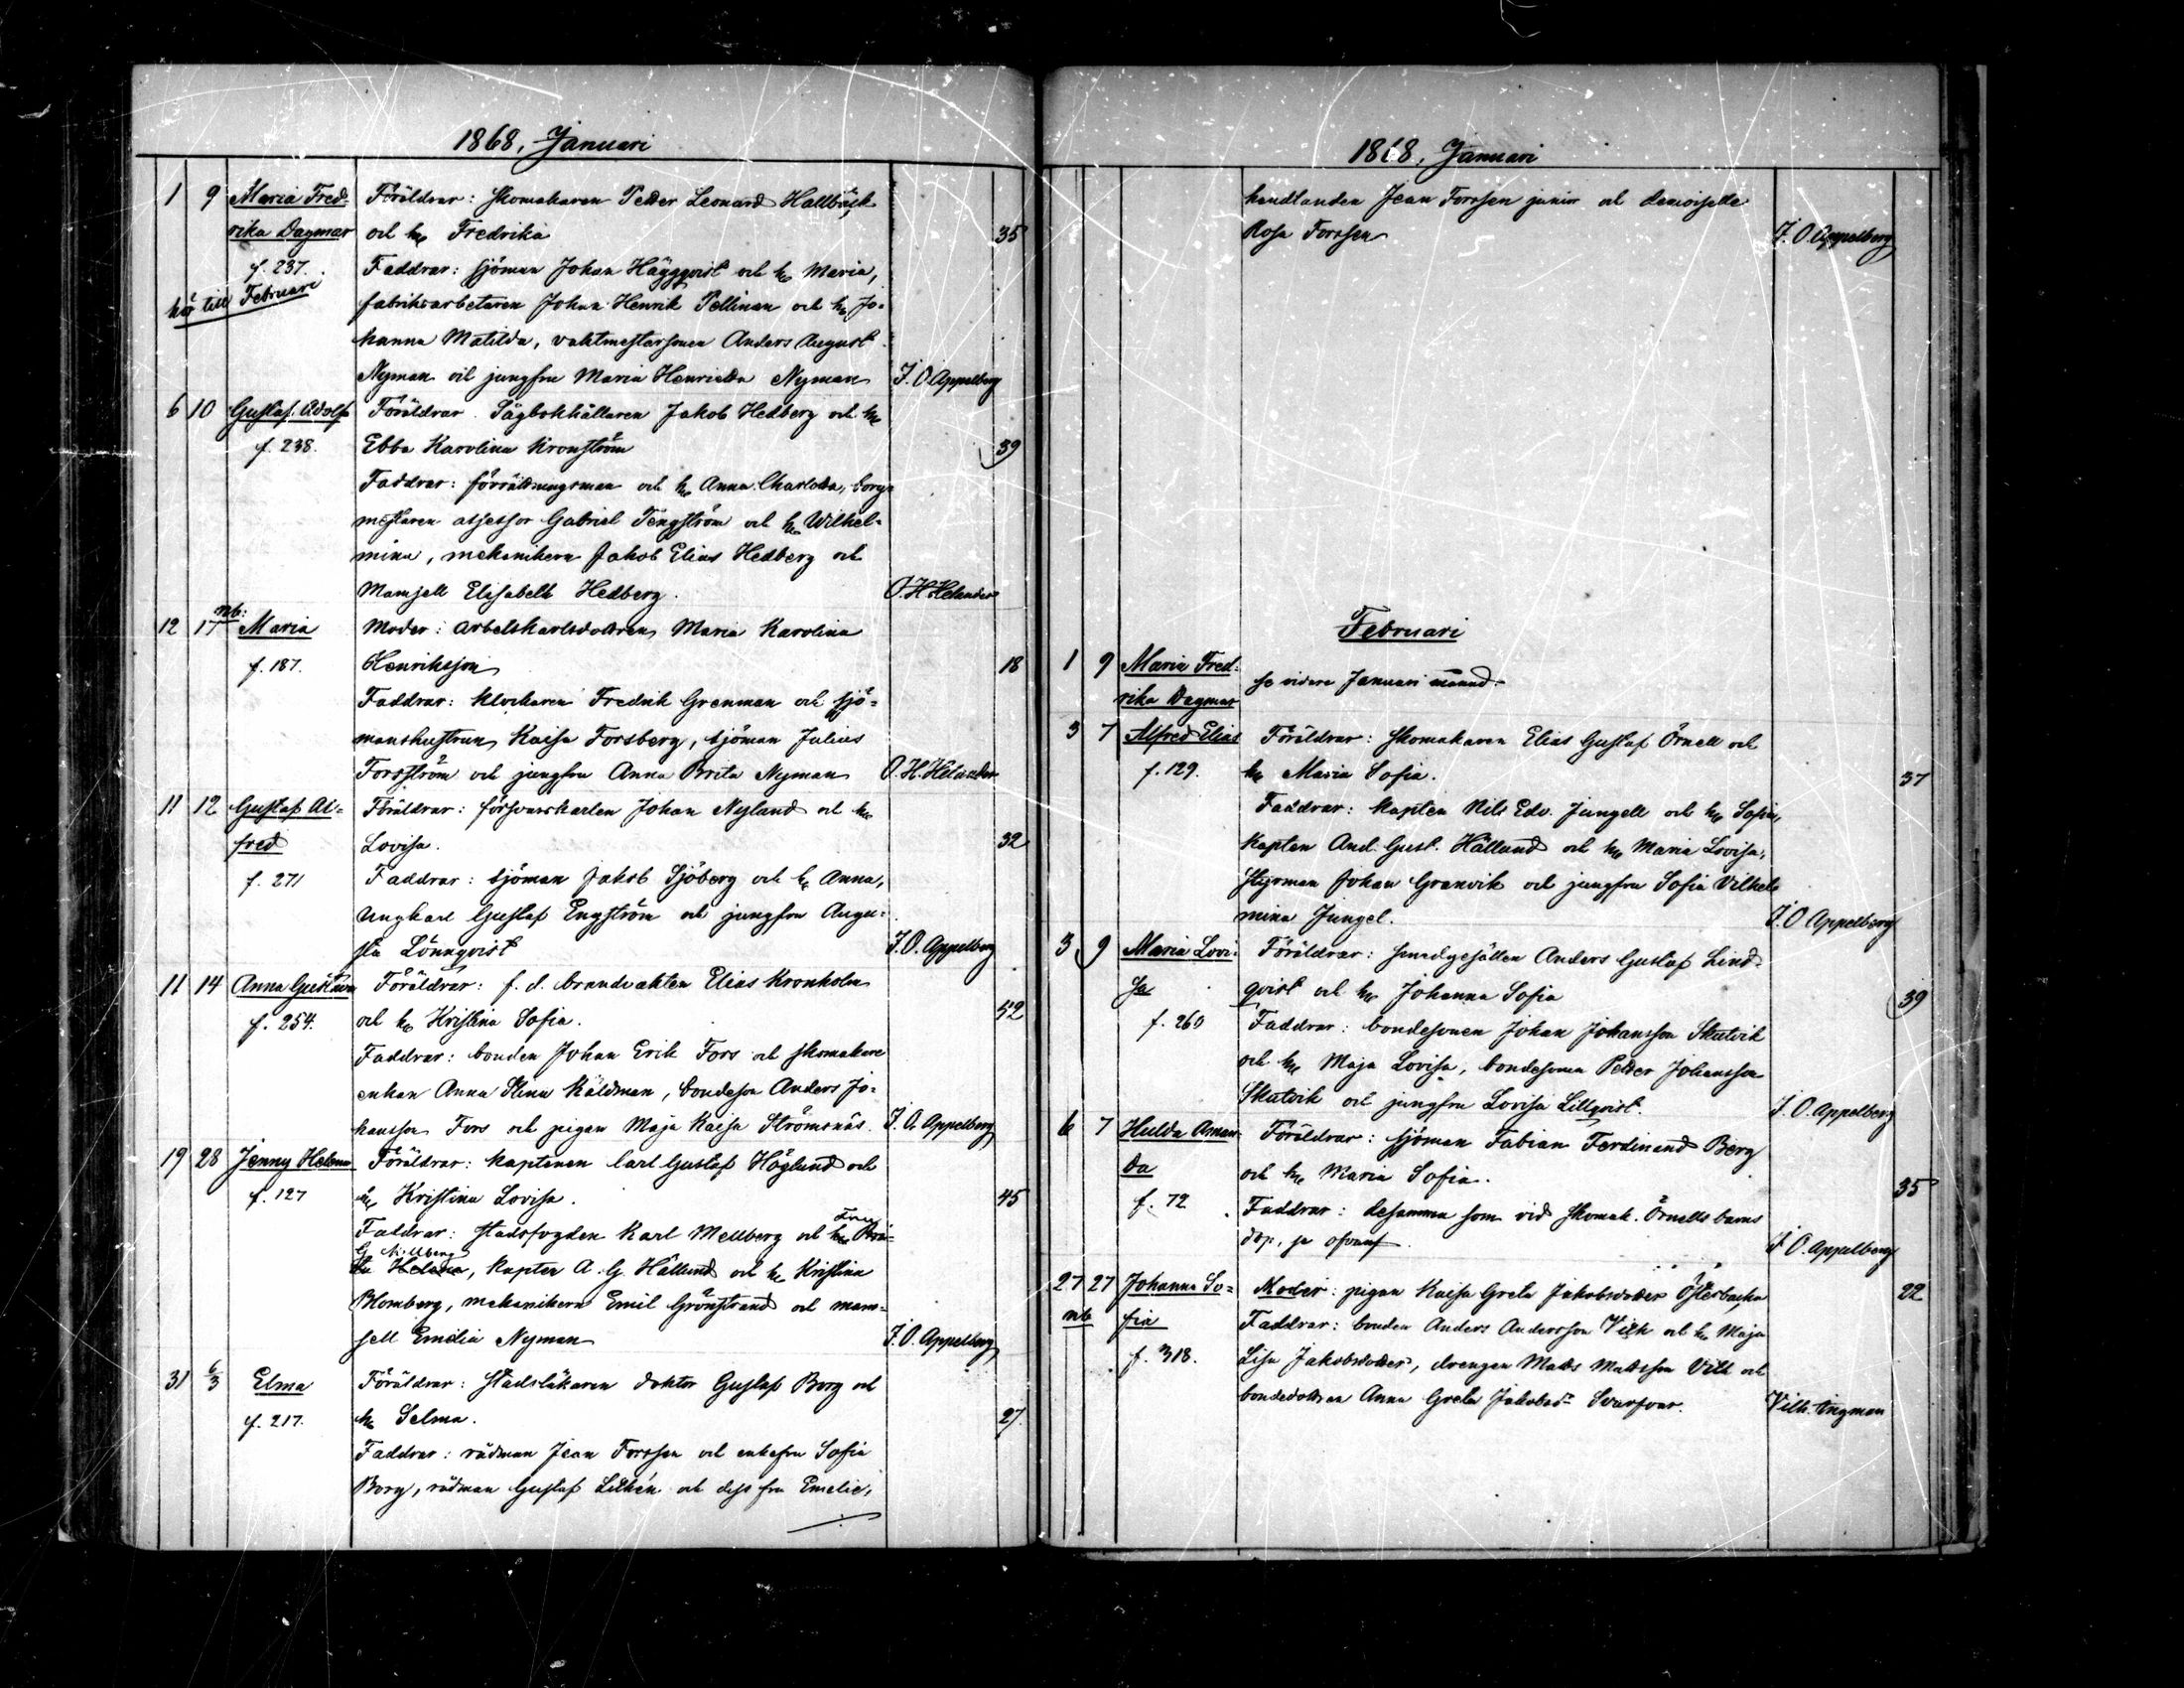 1868, Januari
1 9 Maria Fred- Föräldrar: skomakaren Petter Leonard Hallbäck
rika Dagmar och h. Fredrika 35
f. 237. Faddrar: sjöman Johan Häggqvist och h. Maria,
hör till Februari fabriksarbetaren Johan Henrik Pellinen och h. Jo-
hanna Matilda, vaktmestarsonen Anders August
Nyman och jungfru Maria Henrietta Nyman J. O. Appelberg
6 10 Gustaf Adolf Föräldrar: Sågbokhållaren Jakob Hedberg och h.
f. 238. Ebba Karolina Kronström 39
Faddrar: förrättningsman och h. Anna Charlotta, borg-
mestaren assessor Gabriel Tengström och h. Wilhel-
mina, mekanikern Jakob Elias Hedberg och
Mamsell Elisabeth Hedberg. O. H. Helander
nb:
12 17 Maria Moder: Arbetskarlsdottren Maria Karolina
f. 187. Henriksson 18
Faddrar: klockaren Fredrik Grenman och sjö-
manshustrun Kaisa Forsberg, sjöman Julius
Forsström och jungfru Anna Brita Nyman O. H. Helander
11 12 Gustaf Al- Föräldrar: försvarskarlen Johan Nylund och h.
fred Lovisa. 32
f. 271 Faddrar: sjöman Jakob Sjöberg och h. Anna,
Ungkarl Gustaf Engström och jungfru Augu-
sta Lönnqvist J. O. Appelberg
11 14 Anna Gustava Föräldrar: f. d. brandvakten Elias Kronholm
f. 254. och h. Kristina Sofia. 52
Faddrar: bonden Johan Erik Fors och skomakare
enkan Anna Stina Käldman, bondeson Anders Jo-
hansson Fors och pigan Maja Kaisa Strömsnäs. J. O. Appelberg
19 28 Jenny Helena Föräldrar: kaptenen Carl Gustaf Höglund och
f. 127 h. Kristina Lovisa. 45
Faddrar: stadsfogden Karl Mellberg och h. Fru
G. Mellberg
Helena, kapten A. G. Hällund och h. Kristina
Blomberg, mekanikern Emil Grönstrand och mam-
sell Emilia Nyman J. O. Appelberg
31 6/3 Elma Föräldrar: Stadsläkaren doktor Gustaf Borg och
f. 217. h. Selma. 27.
Faddrar: rådman Jean Forssen och enkefru Sofia
Borg, rådman Gustaf Lithén och dess fru Emelie,
1868, Januari
handlanden Jean Forssen junior och demoiselle
Rosa Forssen J. O. Appelberg
Februari
1 9 Maria Fred-
rika Dagmar se vidare Januari månad.
3 7 Alfred Elias Föräldrar: skomakaren Elias Gustaf Örnell och
f. 129. h. Maria Sofia. 37
Faddrar: kapten Nils Edv. Jungell och h. Sofia,
kapten And. Gust. Hällund och h. Maria Lovisa,
styrman Johan Granvik och jungfru Sofia Vilhel-
mina Jungel. J. O. Appelberg
3 9 Maria Lovi- Föräldrar: smedgesällen Anders Gustaf Lind-
sa qvist och h. Johanna Sofia 39
f. 260 Faddrar: bondesonen Johan Johansson Skutvik
och h. Maja Lovisa, bondesonen Petter Johansson
Skutvik och jungfru Lovisa Lillqvist. J. O. Appelberg
6 7 Hulda Aman- Föräldrar: sjöman Fabian Ferdinand Berg
da och h. Maria Sofia. 35
f. 72 Faddrar: desamma som vid skomak. Örnells barns
dop, se ofvanf. J. O. Appelberg
27 27 Johanna So- Moder: pigan Kaisa Greta Jakobsdotter Österbacka 22
nb fia Faddrar: bonden Anders Andersson Vilk och h. Maja
f. 318. Lisa Jakobsdotter, drengen Matts Mattsson Vilk och
bondedottren Anna Greta Jakobsdr Svarfvar. Vilh. Ingman